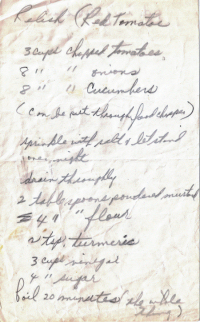 Relish (Red Tomatoe
3 cups chopped tomatoes
8 " " onions
8 " " Cucumbers
(Can be put through food chopper)
sprinkle with salt & let stand
over night
drain throughly
2 tablespoons powdered mustard
4 " " flour
2 tsp. turmeric
3 cup vinegar
4 " sugar
Boil 20 minutes (the whole
thing)